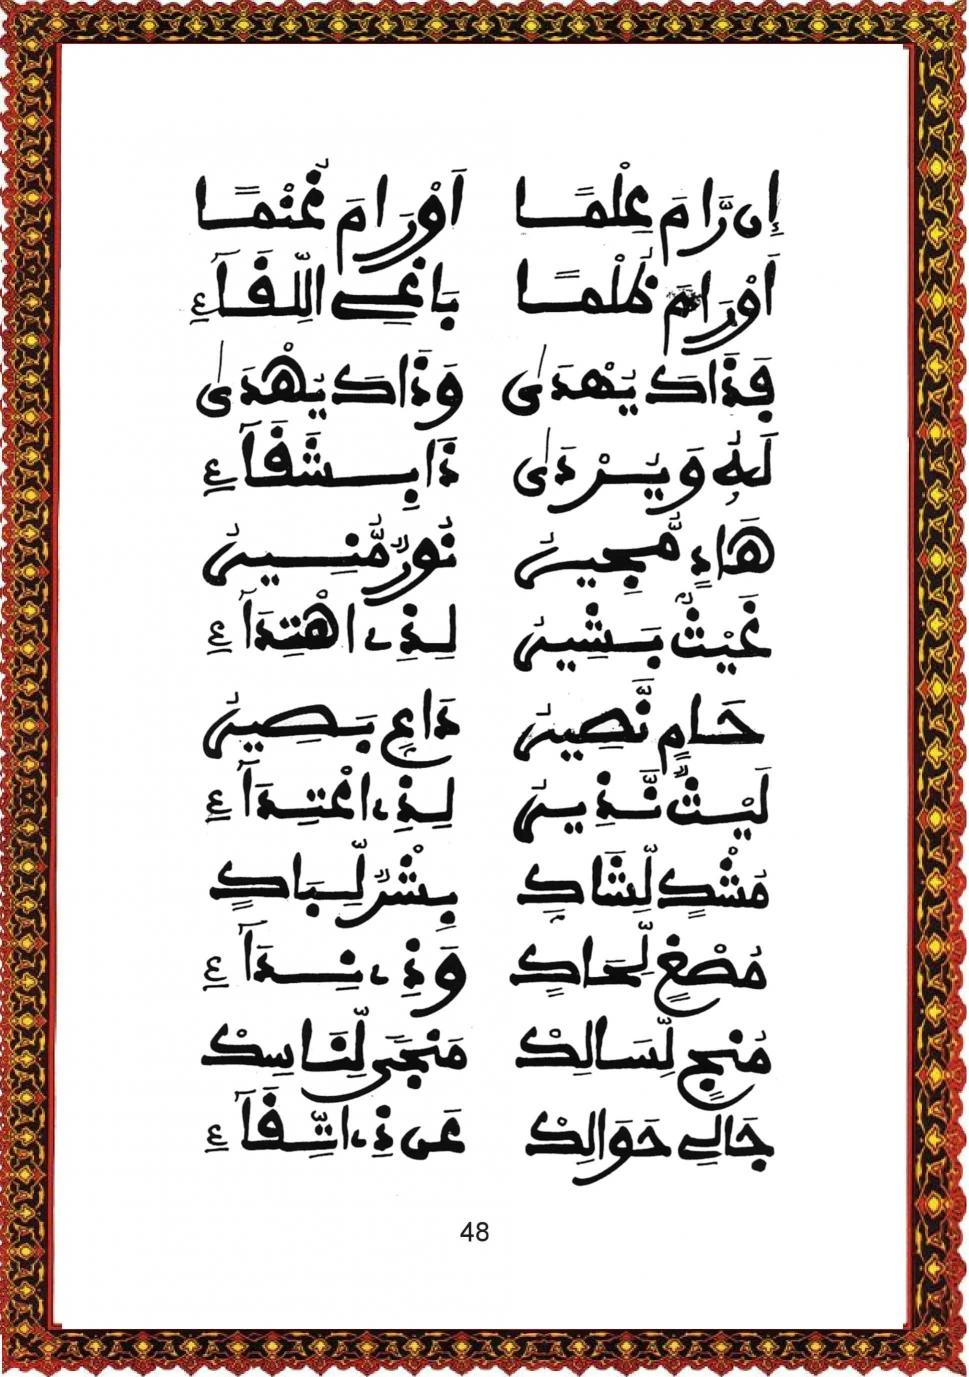 إِن رَّامَ عِلْمًا اَوْرَامَ غُنْمًا
اَوْرَامَ ظُلْمًا بَاغِي اللِّقَآءِ
فَذَاكَ يَهْدَى وَذَاكَ يَهْدَى
لَهُ وَيَرْدَى ذَا بِشَقَآءِ
هَادٍ مُّجِيرٌ نُورٌ مُّنِيرٌ
غَيْثٌ بَشِيرٌ لِذِي اهْتِدَآءِ
حَامٍ نَّصِيرٌ دَاعٍ بَصِيرٌ
لَيْثٌ نَّذِيرٌ لِذِي اعْتِدَآءِ
مُشْكٍ لِّشَاكٍ بِشْرٌ لِّبَاكٍ
مُصْغٍ لِّحَاكٍ وَذِي نِدَآءِ
مُنْجٍ لِّسَالِكْ مَنْجًى لِّنَاسِكْ
جَالِي حَوَالِكْ عَن ذِي اتِّقَآءِ
48